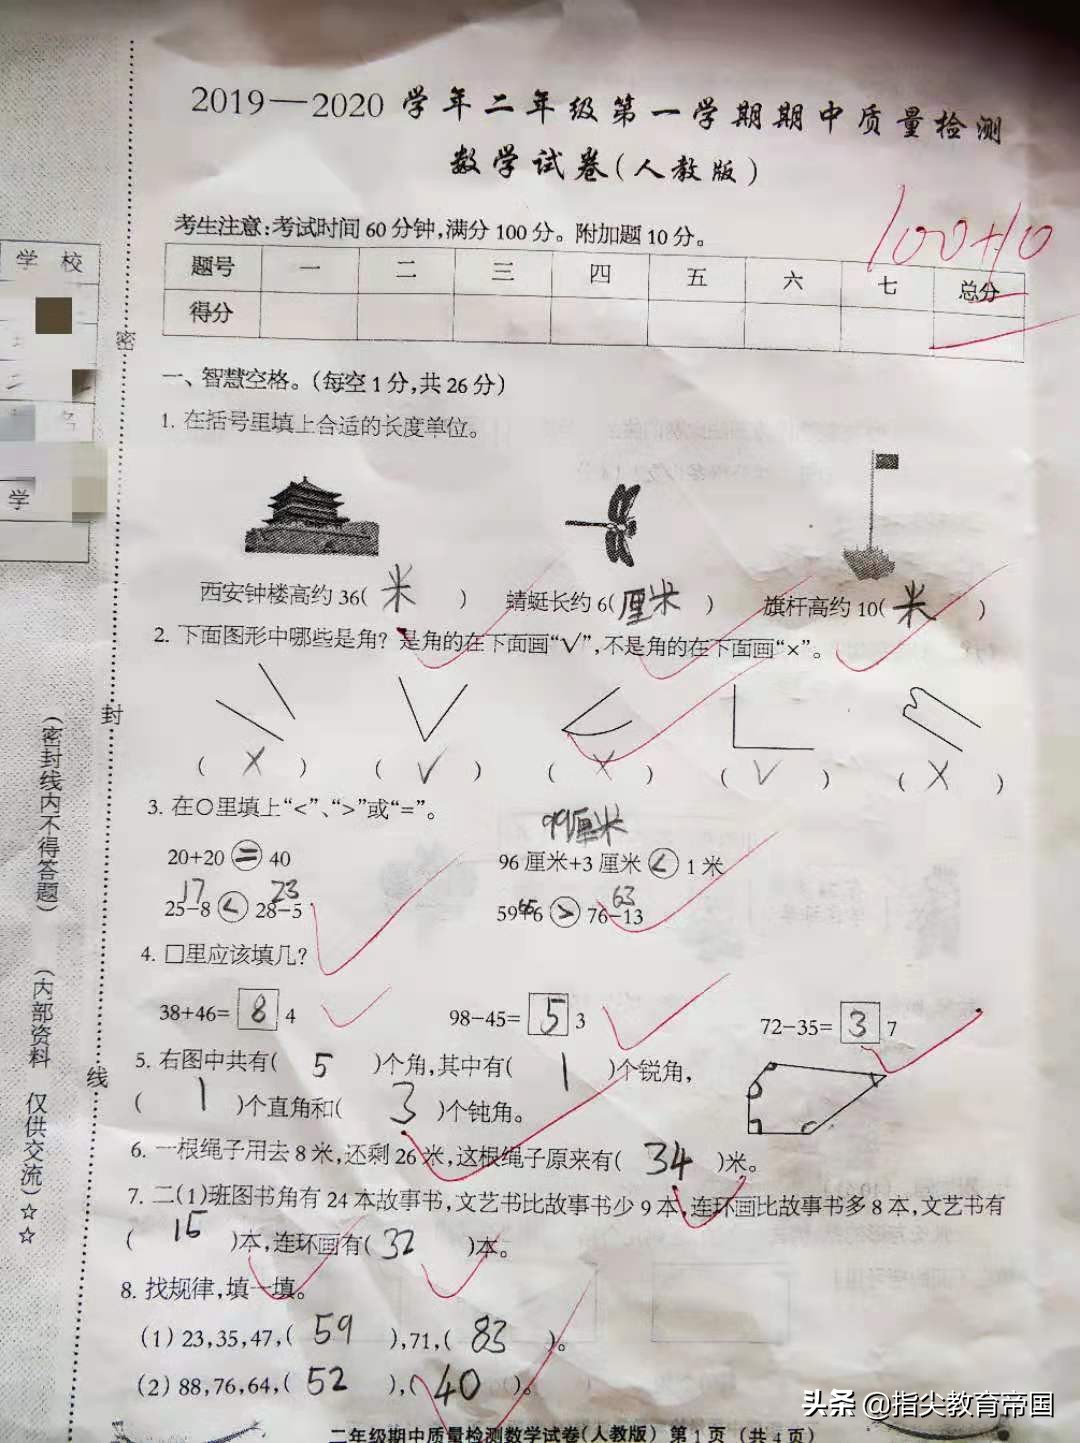 2019—2020 学年二年级第一学期期中质量检测
数学试卷(人教版)
考生注意:考试时间 60 分钟,满分 100 分。附加题 10 分。
100+10
题号 一 二 三 四 五 六 七 总分
得分
学 校
学
密
封
线
(密封线内不得答题) (内部资料 仅供交流)☆☆
一、智慧空格。(每空 1 分,共 26 分)
1. 在括号里填上合适的长度单位。
西安钟楼高约 36( 米 ) 蜻蜓长约 6( 厘米 ) 旗杆高约 10( 米 )
2. 下面图形中哪些是角? 是角的在下面画“√”,不是角的在下面画“×”。
( × ) ( √ ) ( × ) ( √ ) ( × )
3. 在○里填上“<”、“>”或“=”。
99厘米
20+20 = 40 96 厘米+3 厘米 < 1 米
17 23 65 63
25-8 < 28-5 59+6 > 76-13
4. □里应该填几?
38+46= 8 4 98-45= 5 3 72-35= 3 7
5. 右图中共有( 5 )个角,其中有( 1 )个锐角,
( 1 )个直角和( 3 )个钝角。
6. 一根绳子用去 8 米,还剩 26 米,这根绳子原来有( 34 )米。
7. 二(1)班图书角有 24 本故事书,文艺书比故事书少 9 本,连环画比故事书多 8 本,文艺书有
( 15 )本,连环画有( 32 )本。
8. 找规律,填一填。
(1) 23,35,47,( 59 ),71,( 83 )。
(2) 88,76,64,( 52 ),( 40 )。
二年级期中质量检测数学试卷(人教版) 第 1 页 (共 4 页)
头条 @指尖教育帝国